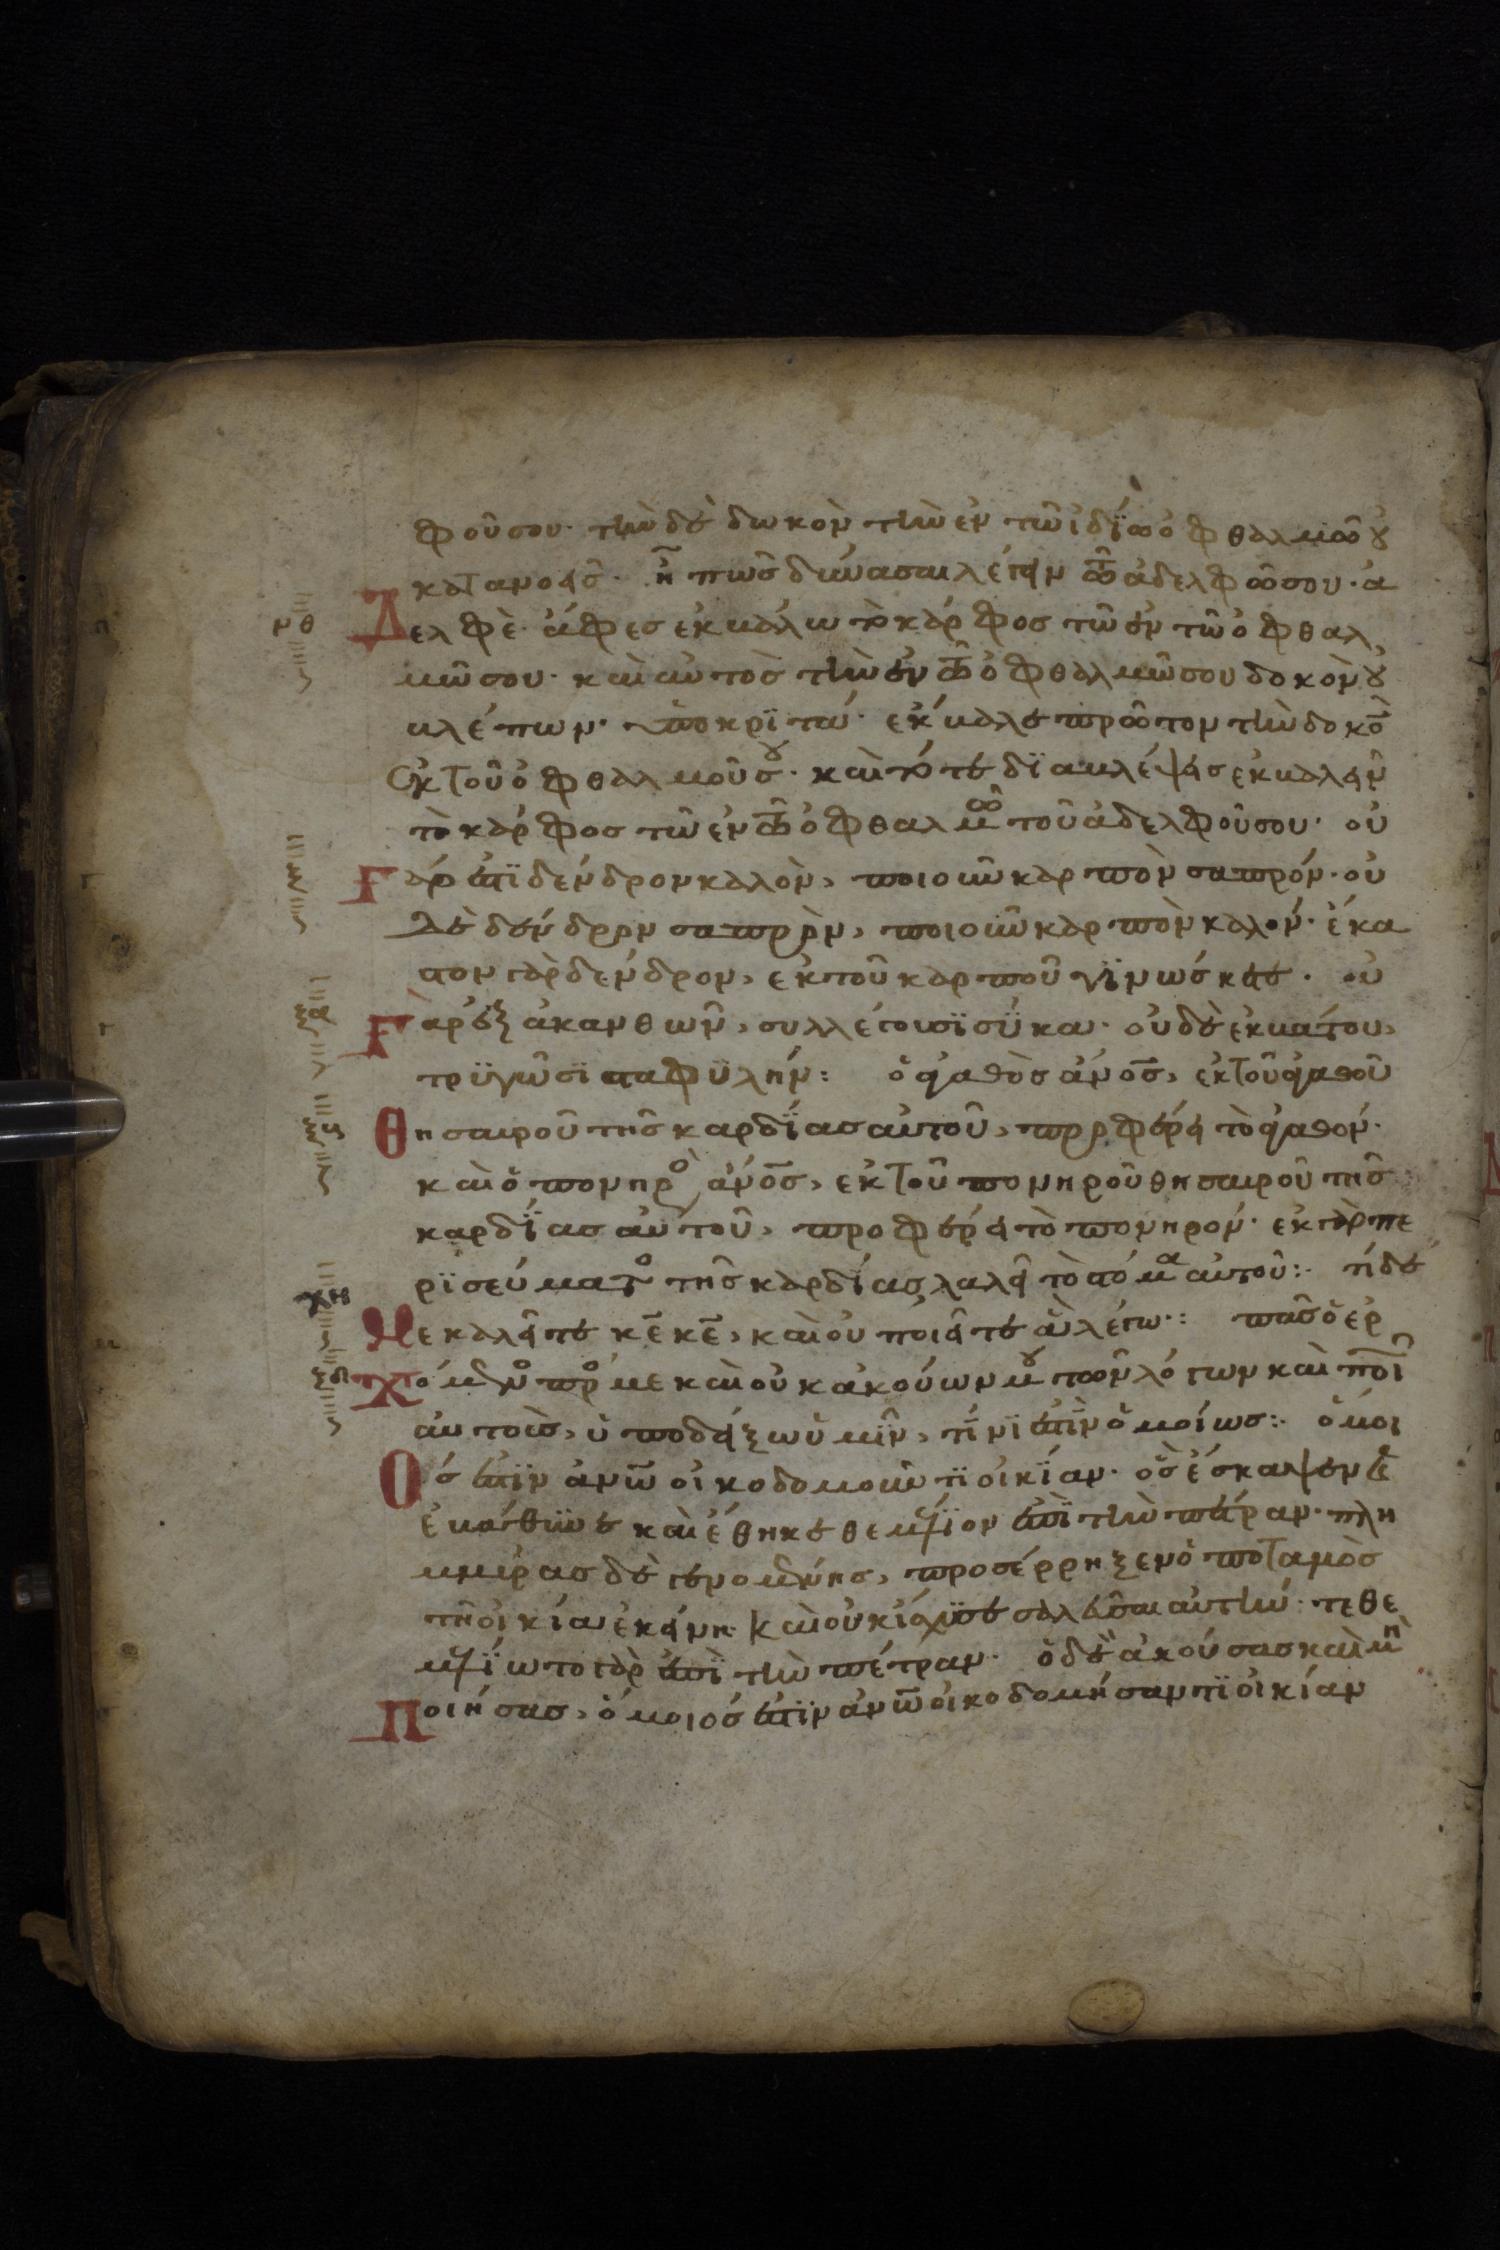 φοῦ σου· τὴν δὲ δωκὸν τὴν ἐν τῶ ἰδΐω ὀφθαλμῶ οὐ
κατανοεῖς· ἢ πῶς δύνασαι λέγειν τῶ ἀδελφῶ σου· ἀ
δελφὲ ἄφες ἐκβάλω τὸ κάρφος τῶ ἐν τῶ ὀφθαλ
μῶ σου· καὶ αὐτὸς τὴν ἐν τῶ ὀφθαλμῶ σου δοκὸν οὐ
βλέπων· ὑποκρϊτά· ἔκβαλε πρῶτον τὴν δοκὸν
ἐκ τοῦ ὀφθαλμοῦ σου· καὶ τότε δϊαβλέψεις ἐκβαλεῖν
τὸ κάρφος τῶ ἐν τῶ ὀφθαλμῶ τοῦ ἀδελφοῦ σου· οὐ
γάρ ἐστϊ δένδρον καλὸν, ποιοῦν καρπὸν σαπρόν· οὐ
δὲ δένδρον σαπρὸν, ποιοῦν καρπὸν καλόν· ἕκα
στον γὰρ δένδρον, ἐκ τοῦ καρποῦ γϊνώσκεται· οὐ
γὰρ ἐξ ἀκανθῶν, συλλέγουσϊ σῦκα· οὐδὲ ἐκ βάτου,
τρϋγῶσϊ σταφϋλήν: ὁ ἀγαθὸς ἄνος, ἐκ τοῦ ἀγαθοῦ
θησαυροῦ τῆς καρδΐας αὐτοῦ, προφέρει τὸ ἀγαθόν·
καὶ ὁ πονηρὸς ἄνος, ἐκ τοῦ πονηροῦ θησαυροῦ τῆς
καρδΐας αὐτοῦ, προφέρει τὸ πονηρόν· ἐκ γὰρ πε
ρϊσεύματος τῆς καρδίας λαλεῖ τὸ στόμα αὐτοῦ: τί δέ
με καλεῖτε κε κε, καὶ οὐ ποιεῖτε ἃ λέγω: πᾶς ὁ ἐρ
χόμενος πρός με καὶ οὐκ ἀκούων μου τῶν λόγων καὶ ποι
αὐτοὺς, ὑποδείξω ὑμῖν, τίνϊ ἐστὶν ὅμοίως: ὅμοι
ός ἐστϊν ἀνω οἰκοδομοῦντϊ οἰκΐαν· ὃς ἔσκαψεν καὶ
ἐβάθυνε καὶ ἔθηκε θεμέλϊον ἐπὶ τὴν πέτραν· πλη
μμύρας δὲ γενομένης, προσέρρηξεν ὁ ποταμὸς
τῆ οἰκία ἐκείνη· καὶ οὐκ ἴσχϋσε σαλεῦσαι αὐτήν· τεθε
μελΐωτο γὰρ ἐπὶ τὴν πέτραν· ὁ δὲ ἀκούσας καὶ μὴ
ποιήσας, ὅμοιός ἐστϊν ἀνω οἰκοδομήσαντϊ οἰκίαν
νθ
ξα
χη